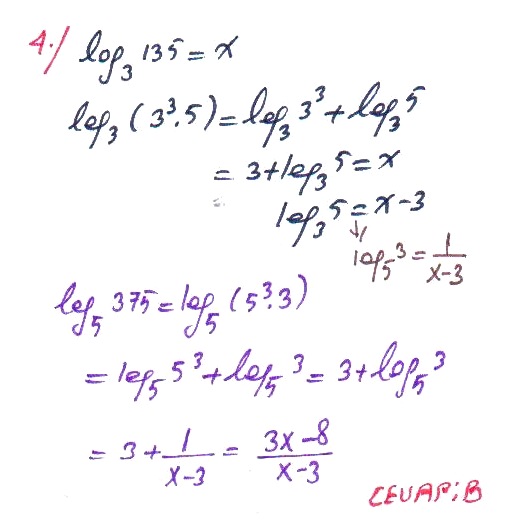 4·/ log₃ 135 = x
log₃ (3³.5) = log₃ 3³ + log₃ 5
= 3 + log₃ 5 = x
log₃ 5 = x - 3
log₅ 3 = 1/(x-3)
log₅ 375 = log₅ (5³.3)
= log₅ 5³ + log₅ 3 = 3 + log₅ 3
= 3 + 1/(x-3) = (3x-8)/(x-3)
CEVAP:B